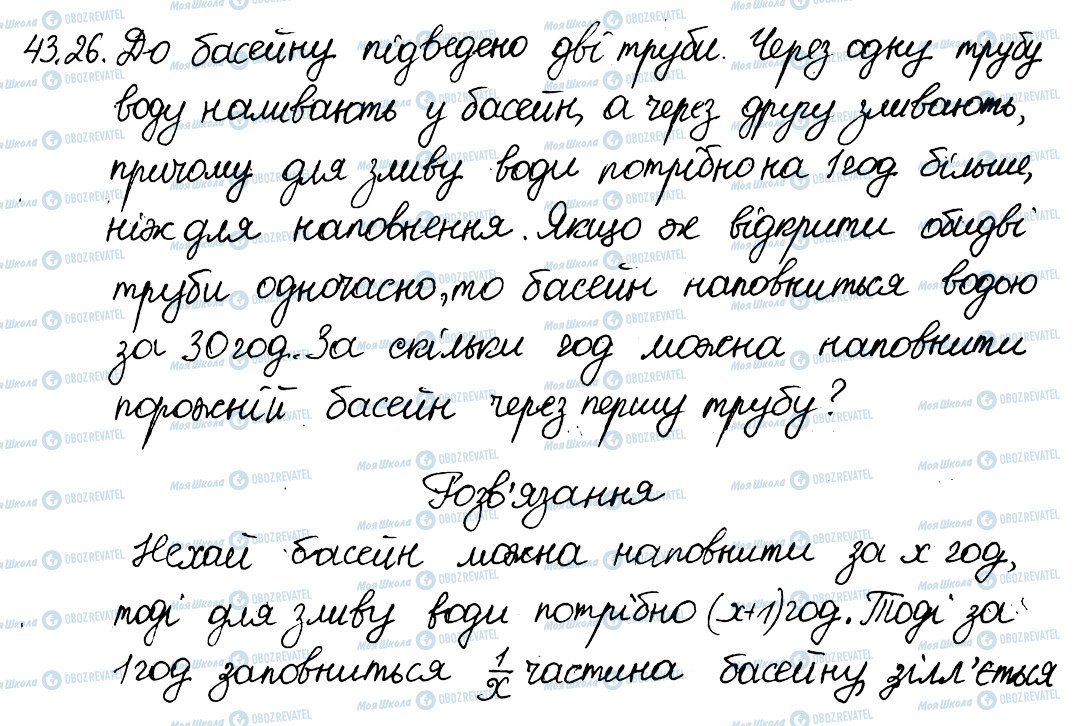 43.26. До басейну підведено дві труби. Через одну трубу
воду наливають у басейн, а через другу зливають,
причому для зливу води потрібно на 1 год більше,
ніж для наповнення. Якщо ж відкрити обидві
труби одночасно, то басейн наповниться водою
за 30 год. За скільки год можна наповнити
порожній басейн через першу трубу?
Розв'язання
Нехай басейн можна наповнити за x год,
тоді для зливу води потрібно (x+1) год. Тоді за
1 год заповниться 1/x частина басейну, зілл'ється